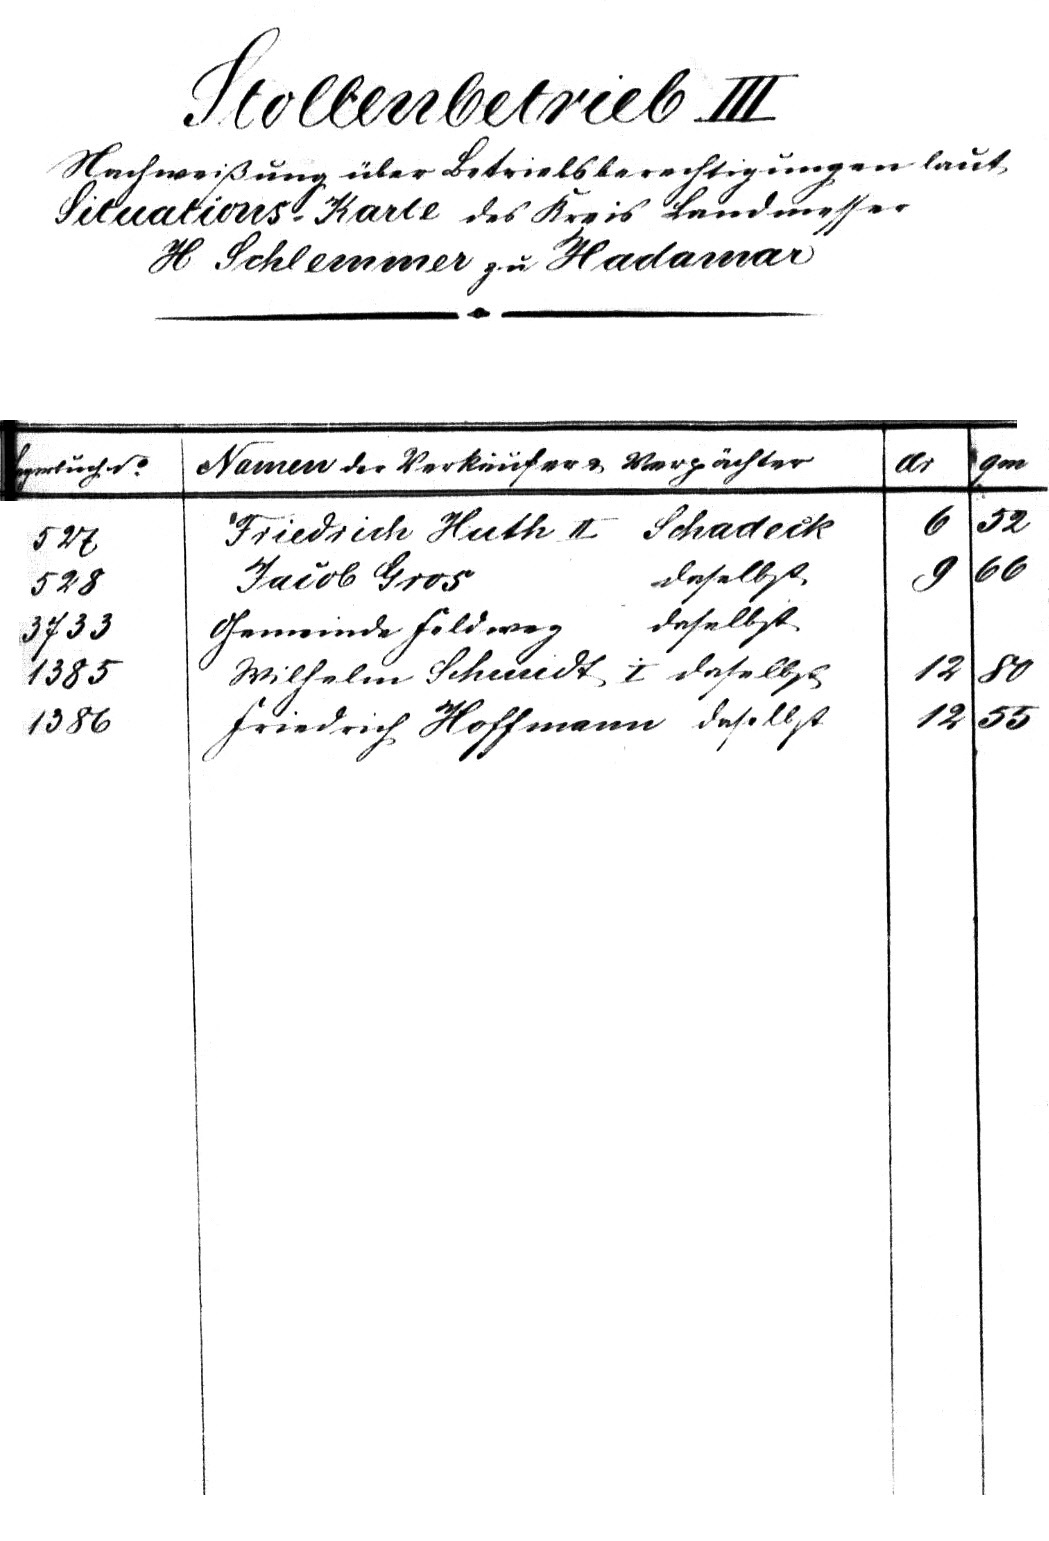 Stollenbetrieb III
Nachweißung über Betriebsberechtigungen laut
Situations-Karte des Kreis Landmesser
H Schlemmer zu Hadamar
Lagerbuch No Namen der Verkäufer & Verpächter ar qm
527 Friedrich Huth II Schadeck 6 52
528 Jacob Gros daselbst 9 66
3733 Gemeinde Feldweg daselbst
1385 Wilhelm Schmidt I daselbst 12 80
1386 Friedrich Hoffmann daselbst 12 55